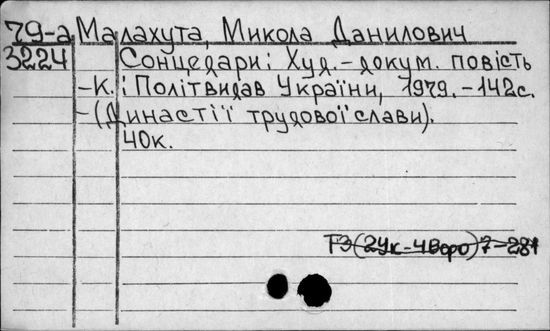 79-а Малахута, Микола Данилович
3224 Сонцедари: Худ.-докум. повість
-К.: Політвидав України, 1979.-142с.
-(Династії трудової слави).
40к.
Т3(2Ук-4Воро)7-281